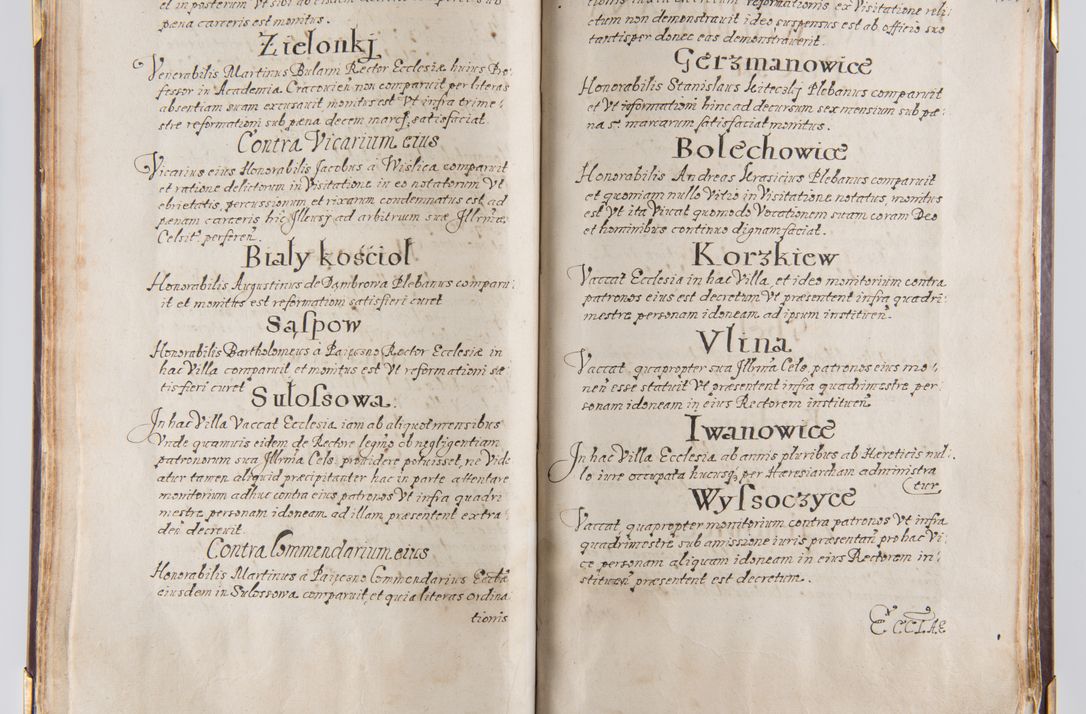 et inposterum Vt sibi ab
pœna carceris est monitus.
Zielonkj
Venerabilis Martinus Bulami Rector Ecclesiæ huius Pro-
fessor in Academia Cracovien̄ non comparuit per literas
absentiam suam excusavit monitus est Vt infra trime-
stre reformationi sub pœna decem marcj satisfaciat.
Contra Vicarium eius
Vicarius eius Honorabilis Jacobus à Wislica comparuit
et ratione delictorum in Visitatione in eo notatorum Vt
ebrietatis, percussionum et rixarum condemnatus est ad
pœnam carceris hic Illeusj ad arbitrum suæ Jllrmæ
Celsit: perferen̄.
Biały kościoł
Honorabilis Augustinus de Dąmbrowa Plebanus comparu-
it et monitus est reformationi satisfieri curet
Sąspow
Honorabilis Bartholomeus à Paięczno Rector Ecclesiæ in
hac Villa comparuit et monitus est Vt reformationi sa-
tisfieri curet
Sułossowa.
Jn hac Villa Vaccat Ecclesia iam ab aliquot mensibus
Vnde quamuis eidem de Rectore legitimo ob negligentiam
patronorum sua Jllrma Cels: providere potuisset, ne Vide-
atur tamen aliquid præcipitanter hac in parte attentare
monitorium adhuc contra eius patronos Vt infra quadri-
mestre personam idoneam ad illam præsentent extra-
den̄ decrevit.
Contra Commendarium eius
Honorabilis Martinus à Paięczno Commendarius Ecctiæ
eiusdem in Sulossowa comparuit, et quia literas ordina-
tionis
reformationis ex Visitatione reli-
ctum non demonstrauit ideo suspensus est ab officio suo
tantisper donec eas demonstraverit.
Gerzmanowice
Honorabilis Stanislaus Kiteczkj Plebanus comparuit
et Vt informationi hinc ad decursum sex mensium sub pæ-
na 5. marcarum satisfaciat monitus.
Bolechowice
Honorabilis Andreas Krasicius Plebanus comparuit
et quoniam nullo Vitio in Visitatione notatus, monitus
est Vt ita Vivat quomodo Vocationem suam coram Deo
et hominibus continuo dignam faciat.
Korzkiew
Vaccat Ecclesia in hac Villa, et ideo monitorium contra
patronos eius est decretum Vt præsentent infra quadri-
mestre personam idoneam ad ipsum instituen̄.
Vlina
Vaccat, quapropter sua Jllrma Cels: patronos eius mo-
nen̄ esse statuit Vt præsentent infra quadrimestre per-
sonam idoneam in eius Rectorem instituen̄
Iwanowice
Jn hac Villa Ecclesia ab annis pluribus ab Hereticis nul-
lo iure occupata hucusq; per Hæresiarcham administra
tur.
Wyssoczyce
Vaccat quapropter monitorium contra patronos Vt infra
quadrimestre sub amissione iuris præsentan̄ pro hac Vi-
ce personam aliquam idoneam in eius Rectorem in-
stituen̄ præsentent est decretum.
ECCLAE